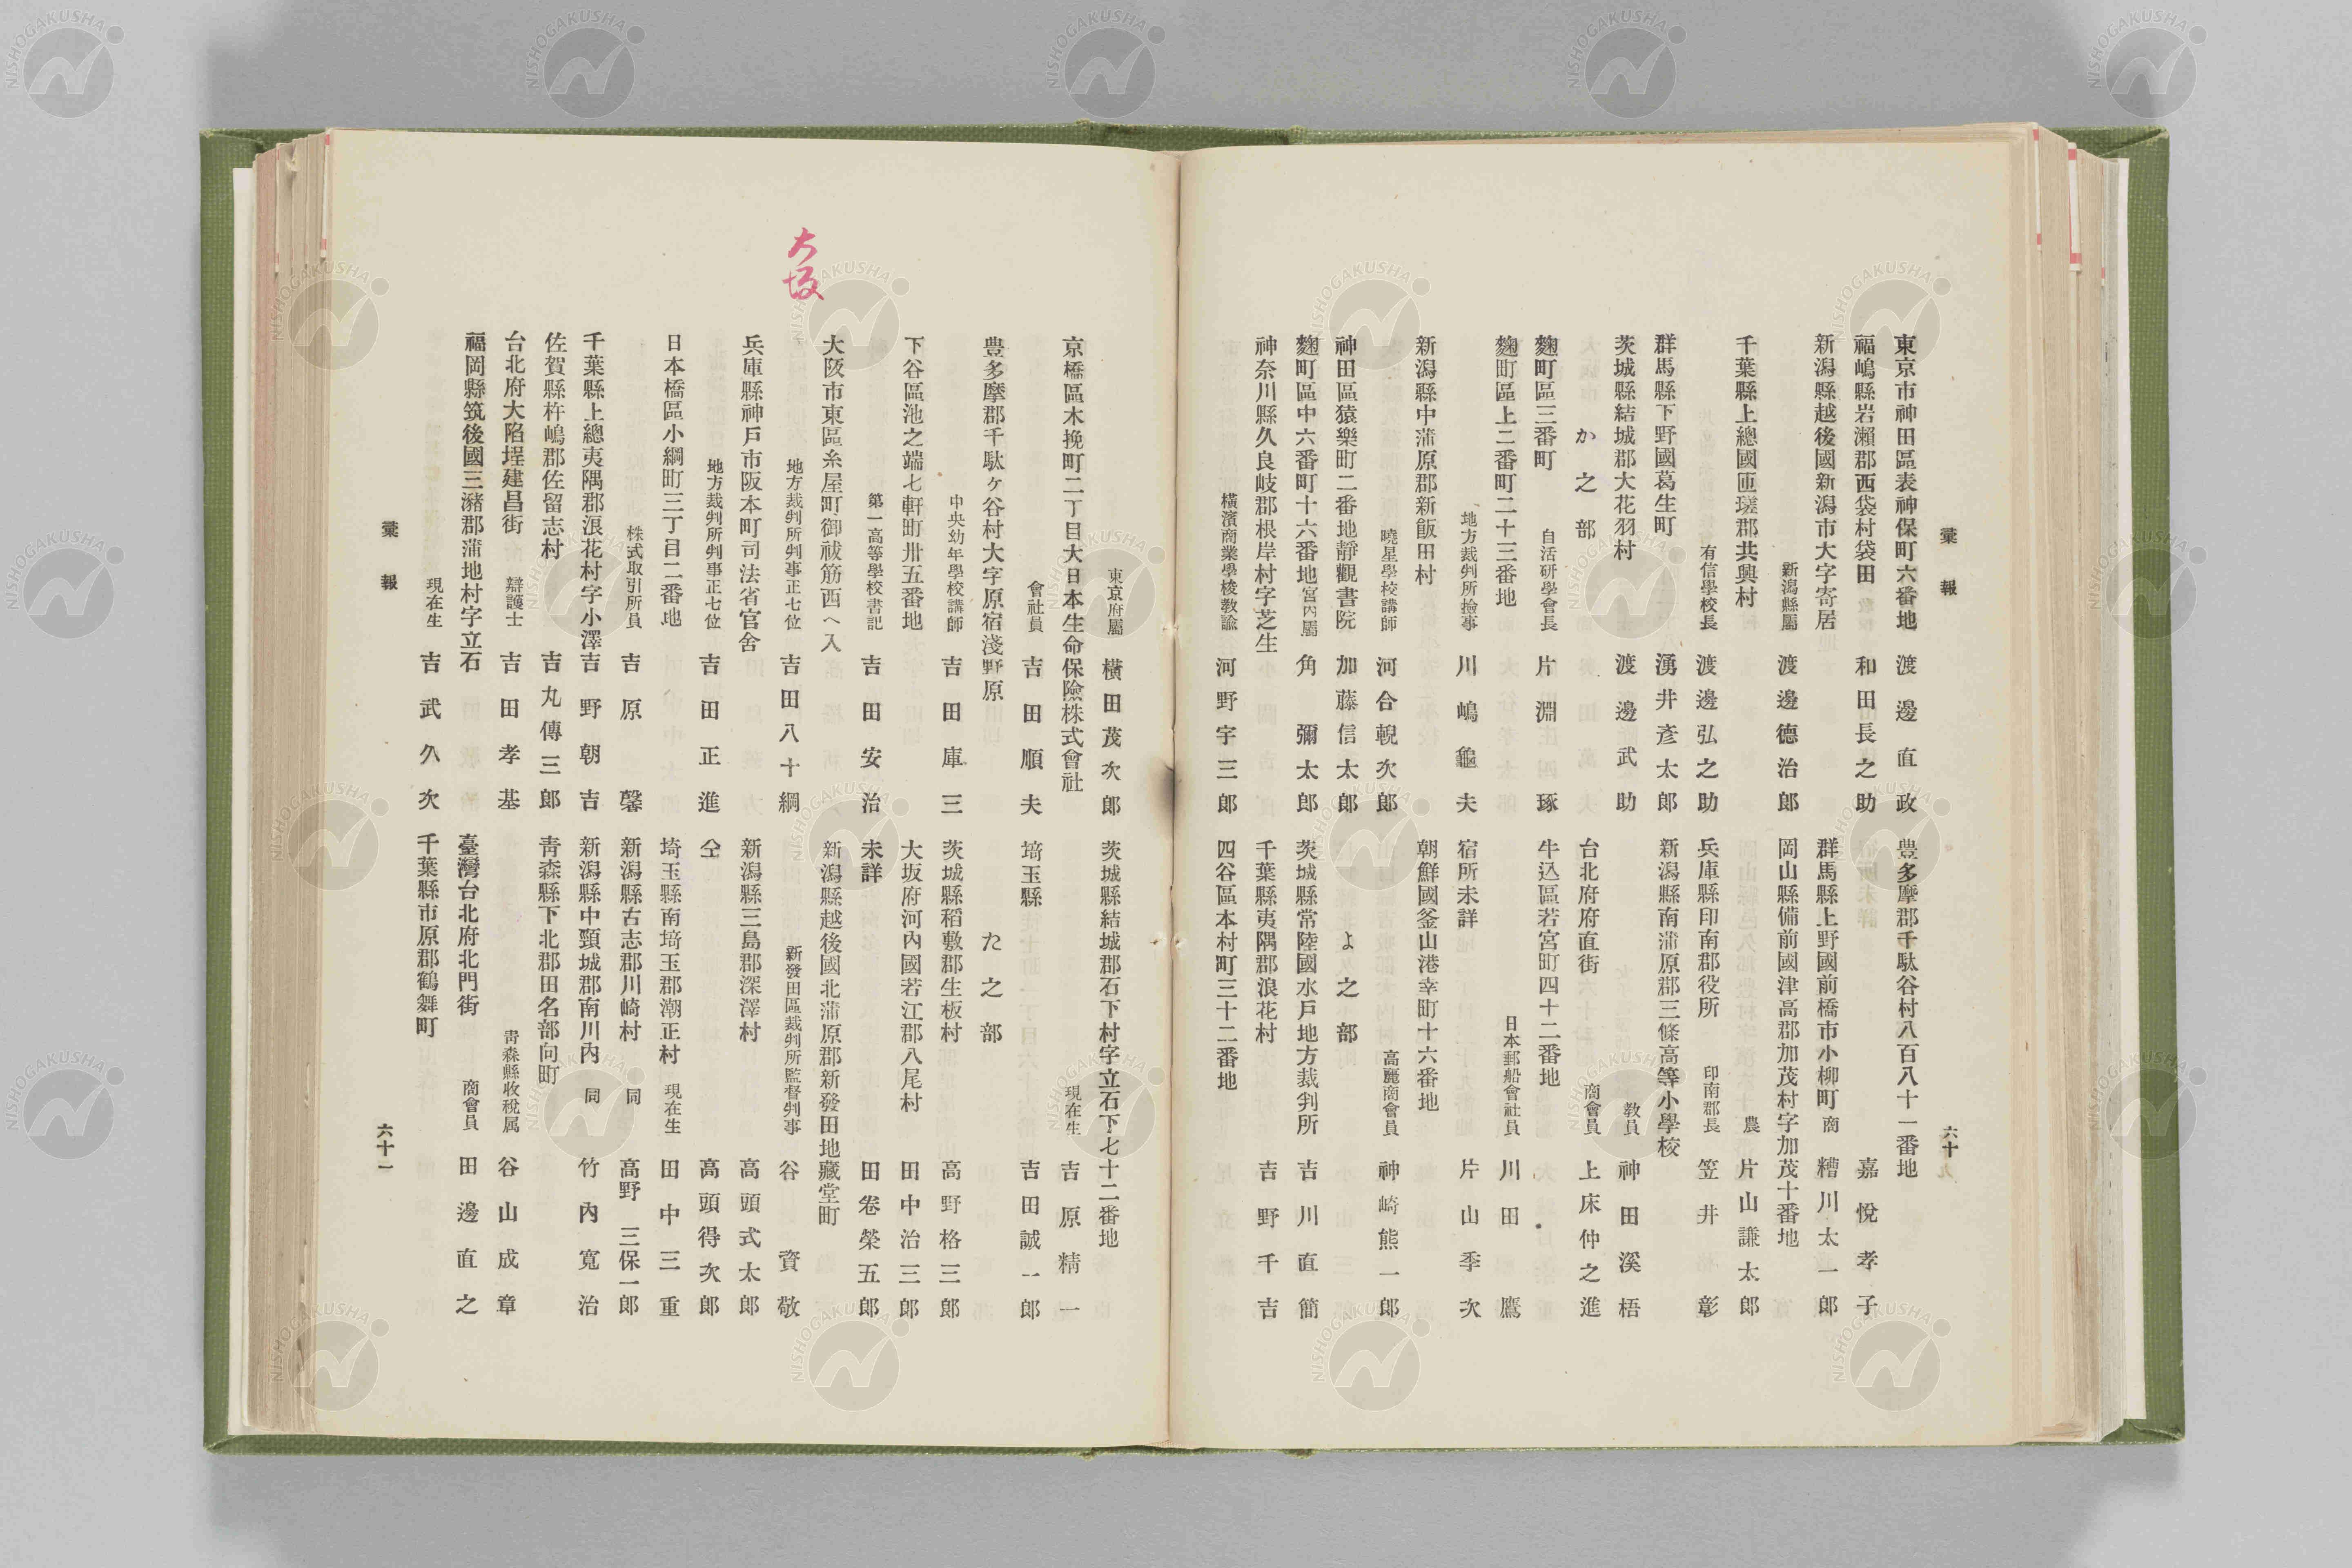 彙報
東京市神田區表神保町六番地　渡邊直政
福嶋縣岩瀬郡西袋村袋田　和田長之助
新潟縣越後國新潟市大字寄居
新潟縣屬　渡邊德治郎
千葉縣上總國匝瑳郡共興村
有信學校長　渡邊弘之助
群馬縣下野國葛生町　湧井彥太郎
茨城縣結城郡大花羽村　渡邊武助
か之部
麴町區三番町　自活研學會長　片淵琢
麴町區上二番町二十三番地
地方裁判所撿事　川嶋龜夫
新潟縣中蒲原郡新飯田村
曉星學校講師　河合輗次郎
神田區猿樂町二番地靜觀書院　加藤信太郎
麴町區中六番町十六番地宮内屬　角彌太郎
神奈川縣久良岐郡根岸村字芝生
橫濱商業學校敎諭　河野宇三郎
豊多摩郡千駄谷村八百八十一番地
嘉悅孝子
群馬縣上野國前橋市小柳町　商　糟川太一郎
岡山縣備前國津高郡加茂村字加茂十番地
農　片山謙太郎
兵庫縣印南郡役所　印南郡長　笠井彰
新潟縣南蒲原郡三條高等小學校
敎員　神田溪梧
台北府府直街　商會員　上床仲之進
牛込區若宮町四十二番地
日本郵船會社員　川田鷹
宿所未詳　片山季次
朝鮮國釜山港幸町十六番地
高麗商會員　神崎熊一郎
よ之部
茨城縣常陸國水戶地方裁判所　吉川直簡
千葉縣夷隅郡浪花村　吉野千吉
四谷區本村町三十二番地
六十
東京府屬　橫田茂次郎
京橋區木挽町二丁目大日本生命保險株式會社
會社員　吉田順夫
豊多摩郡千駄ヶ谷村大字原宿淺野原
中央幼年學校講師　吉田庫三
下谷區池之端七軒町卅五番地
第一高等學校書記　吉田安治
大阪市東區糸屋町御祓筋西ヘ入
地方裁判所判事正七位　吉田八十綱
兵庫縣神戶市阪本町司法省官舍
地方裁判所判事正七位　吉田正進
日本橋區小網町三丁目二番地
株式取引所員　吉原馨
千葉縣上總夷隅郡浪花村字小澤　吉野朝吉
佐賀縣杵嶋郡佐留志村　吉丸傳三郎
台北府大陷埕建昌街　辯護士　吉田孝基
福岡縣筑後國三瀦郡蒲地村字立石
現在生　吉武久次
大坂
茨城縣結城郡石下村字立石下七十二番地
現在生　吉原精一
埼玉縣　吉田誠一郎
た之部
茨城縣稻敷郡生板村　高野格三郎
大坂府河內國若江郡八尾村　田中治三郎
未詳　田卷榮五郎
新潟縣越後國北蒲原郡新發田地藏堂町
新發田區裁判所監督判事　谷資敬
新潟縣三島郡深澤村　高頭式太郎
仝　高頭得次郎
埼玉縣南埼玉郡潮正村　現在生　田中三重
新潟縣古志郡川崎村　同　高野三保一郎
新潟縣中頸城郡南川內　同　竹內寬治
靑森縣下北郡田名部向町
靑森縣收稅属　谷山成章
臺灣台北府北門街　商會員　田邊直之
千葉縣市原郡鶴舞町
彙報
六十一
NISHOGAKUSHA